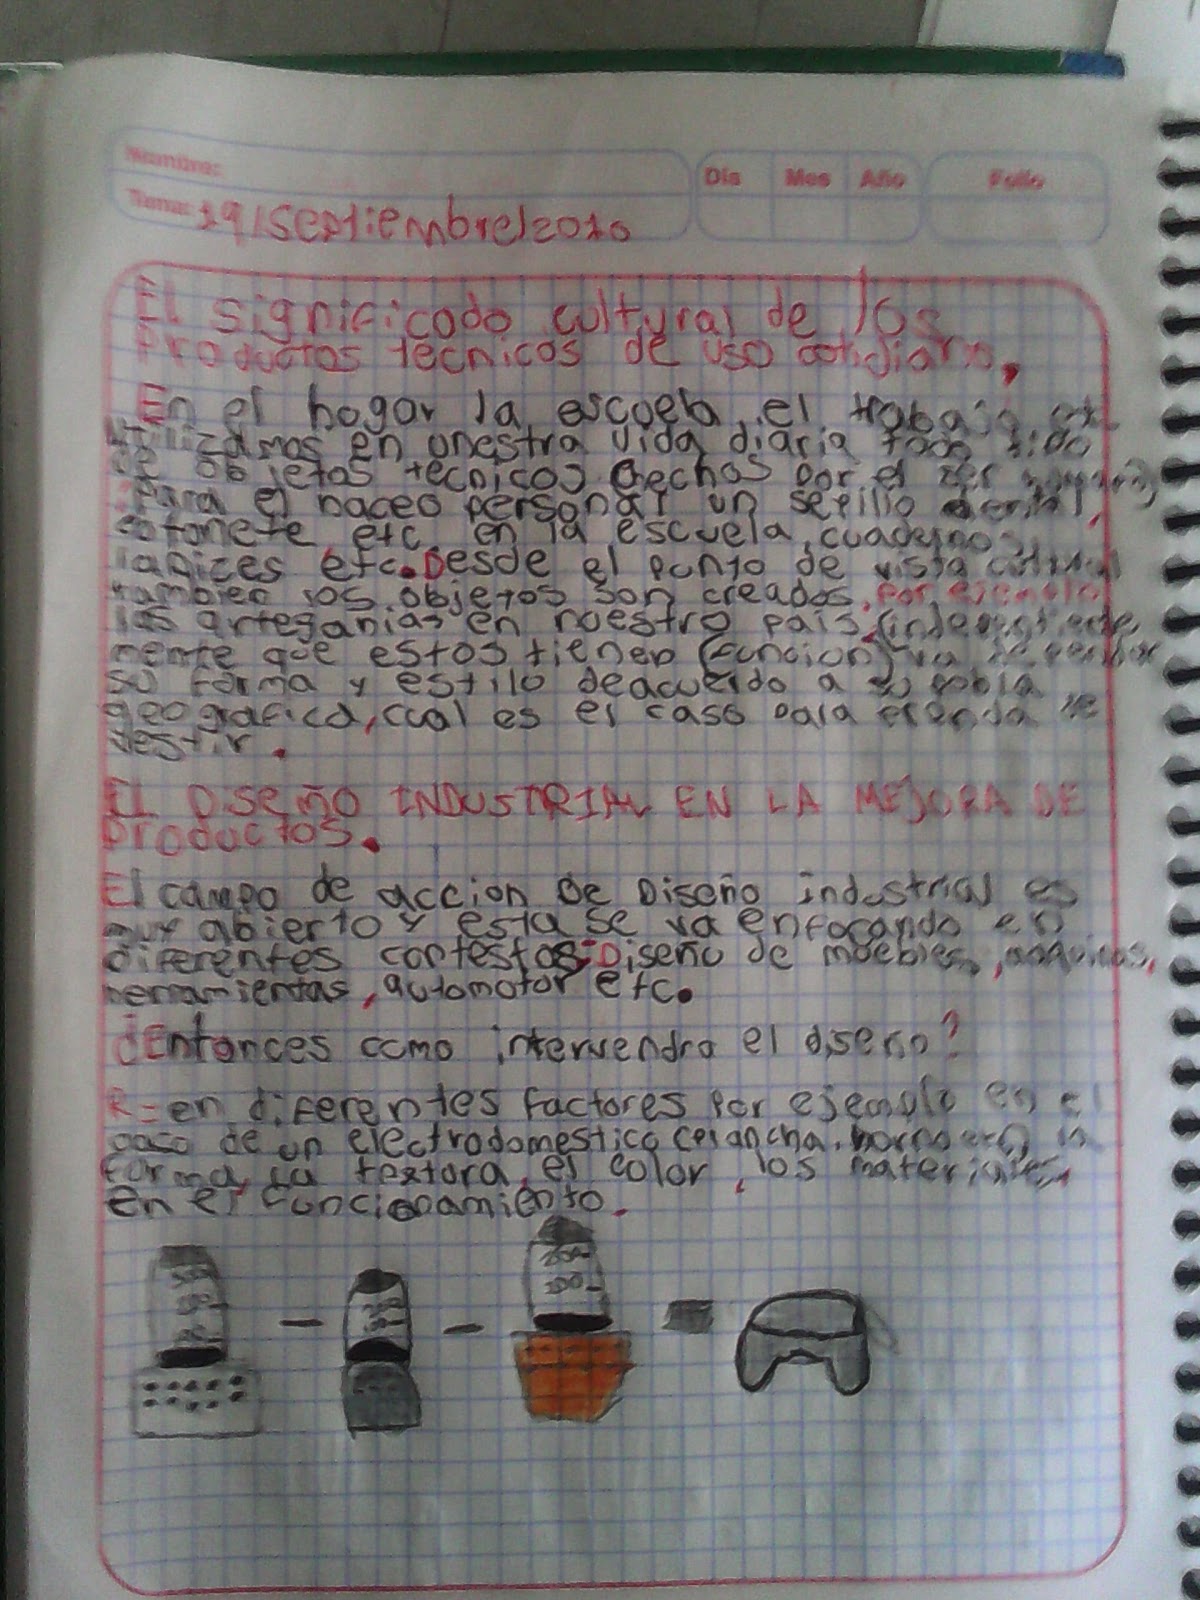 Nombre:
Día Mes Año Folio
Tema: 19/septiembre/2010
El significado cultural de los
Productos tecnicos de uso cotidiano.
En el hogar la escuela, el trabajo, etc
utilizamos en unestra vida diaria todo tipo
de objetos tecnicos hechos por el ser humano,
Para el naceo personal un sepillo dental,
cotonete, etc, en la escuela, cuadernos,
lapices, etc. Desde el punto de vista cultural
tambien los objetos son creados, por ejemplo
las artesanias en nuestro pais (independiente
mente que estos tienen (funcion) va
su forma y estilo deacuerdo a su
geografica, cual es el caso para prenda de
vestir.
El DSEÑO INDUSTRIAL EN LA MEJORA DE
productos.
El campo de accion De Diseño industrial es
muy abierto y esta se va enfocando en
diferentes contestos: Diseño de muebles, maquinas,
herramientas, automotor etc.
¿Entonces como intervendra el diseño?
R= en diferentes factores por ejemplo en el
caso de un electrodomestico horno la
forma, la textora, el color, los materiales,
en el funcionamiento.
200
100